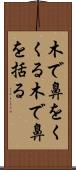 木で鼻をく
くる木で鼻
を括る